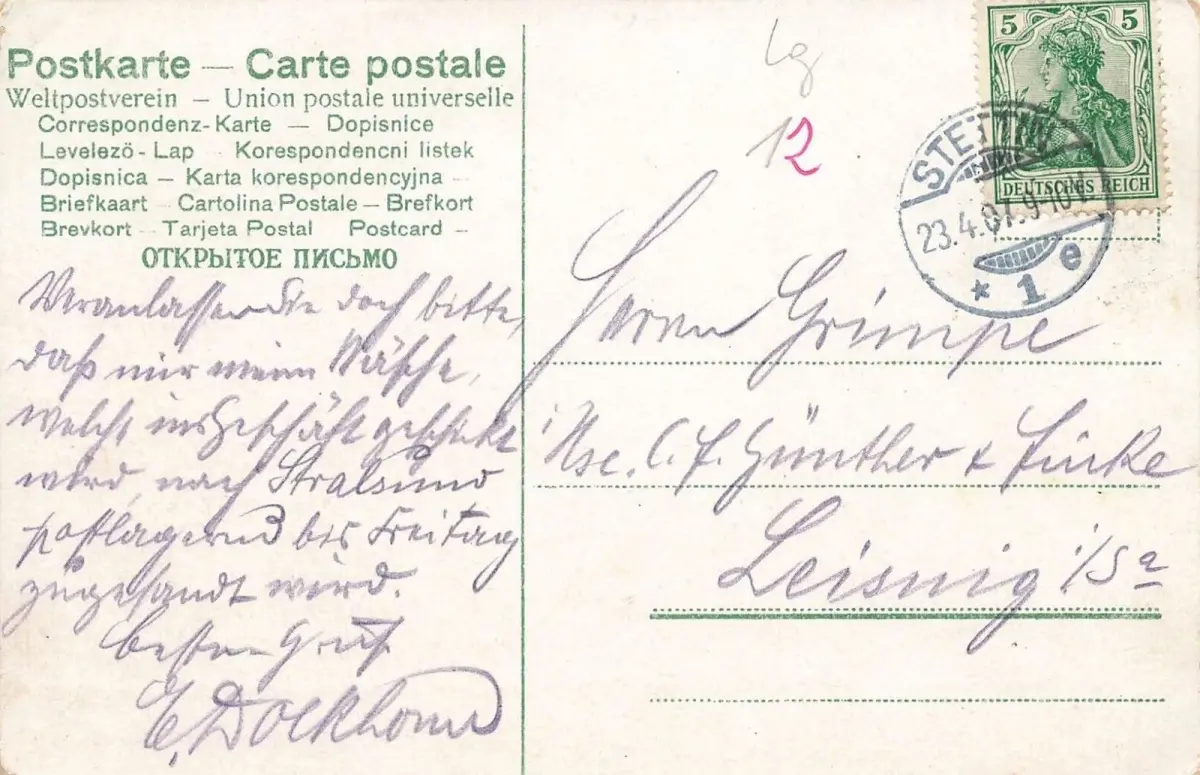 Postkarte — Carte postale
Weltpostverein — Union postale universelle
Correspondenz-Karte — Dopisnice
Levelező-Lap — Korespondencni listek
Dopisnica — Karta korespondencyjna —
Briefkaart — Cartolina Postale — Brefkort
Brevkort — Tarjeta Postal Postcard —
ОТКРЫТОЕ ПИСЬМО
Veranlassen Sie doch bitte,
daß mir meine Wäsche,
welche ins Geschäft geschickt
wird, nach Stralsund
postlagernd bis Freitag
zugesandt wird.
besten Gruß
E. Dockhorn
Lg
12
5 5
DEUTSCHES REICH
STETTIN
23.4.07.9-10V.
* 1 e
Herrn Grimpe
C. F. Günther & Fincke
Leisnig i/Sa